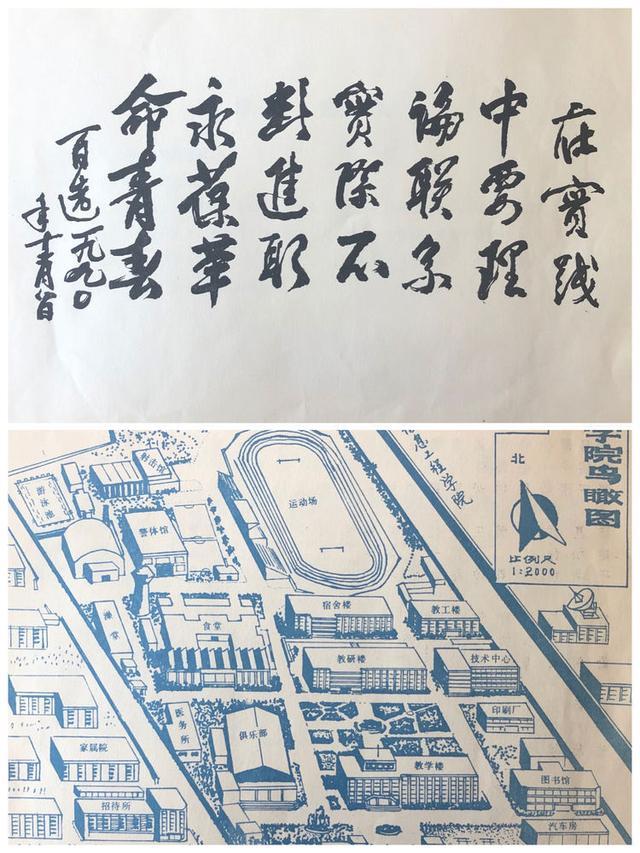 在實践
中要理
論联系
實際不
断進取
永葆革
命青春
一九九〇
年
学院鸟瞰图
北
比例尺
1:2000
息工程学院
射击馆
游泳池
警体馆
运动场
澡堂
食堂
宿舍楼
教工楼
教研楼
技术中心
医务所
俱乐部
印刷厂
教学楼
图书馆
家属院
招待所
汽车房